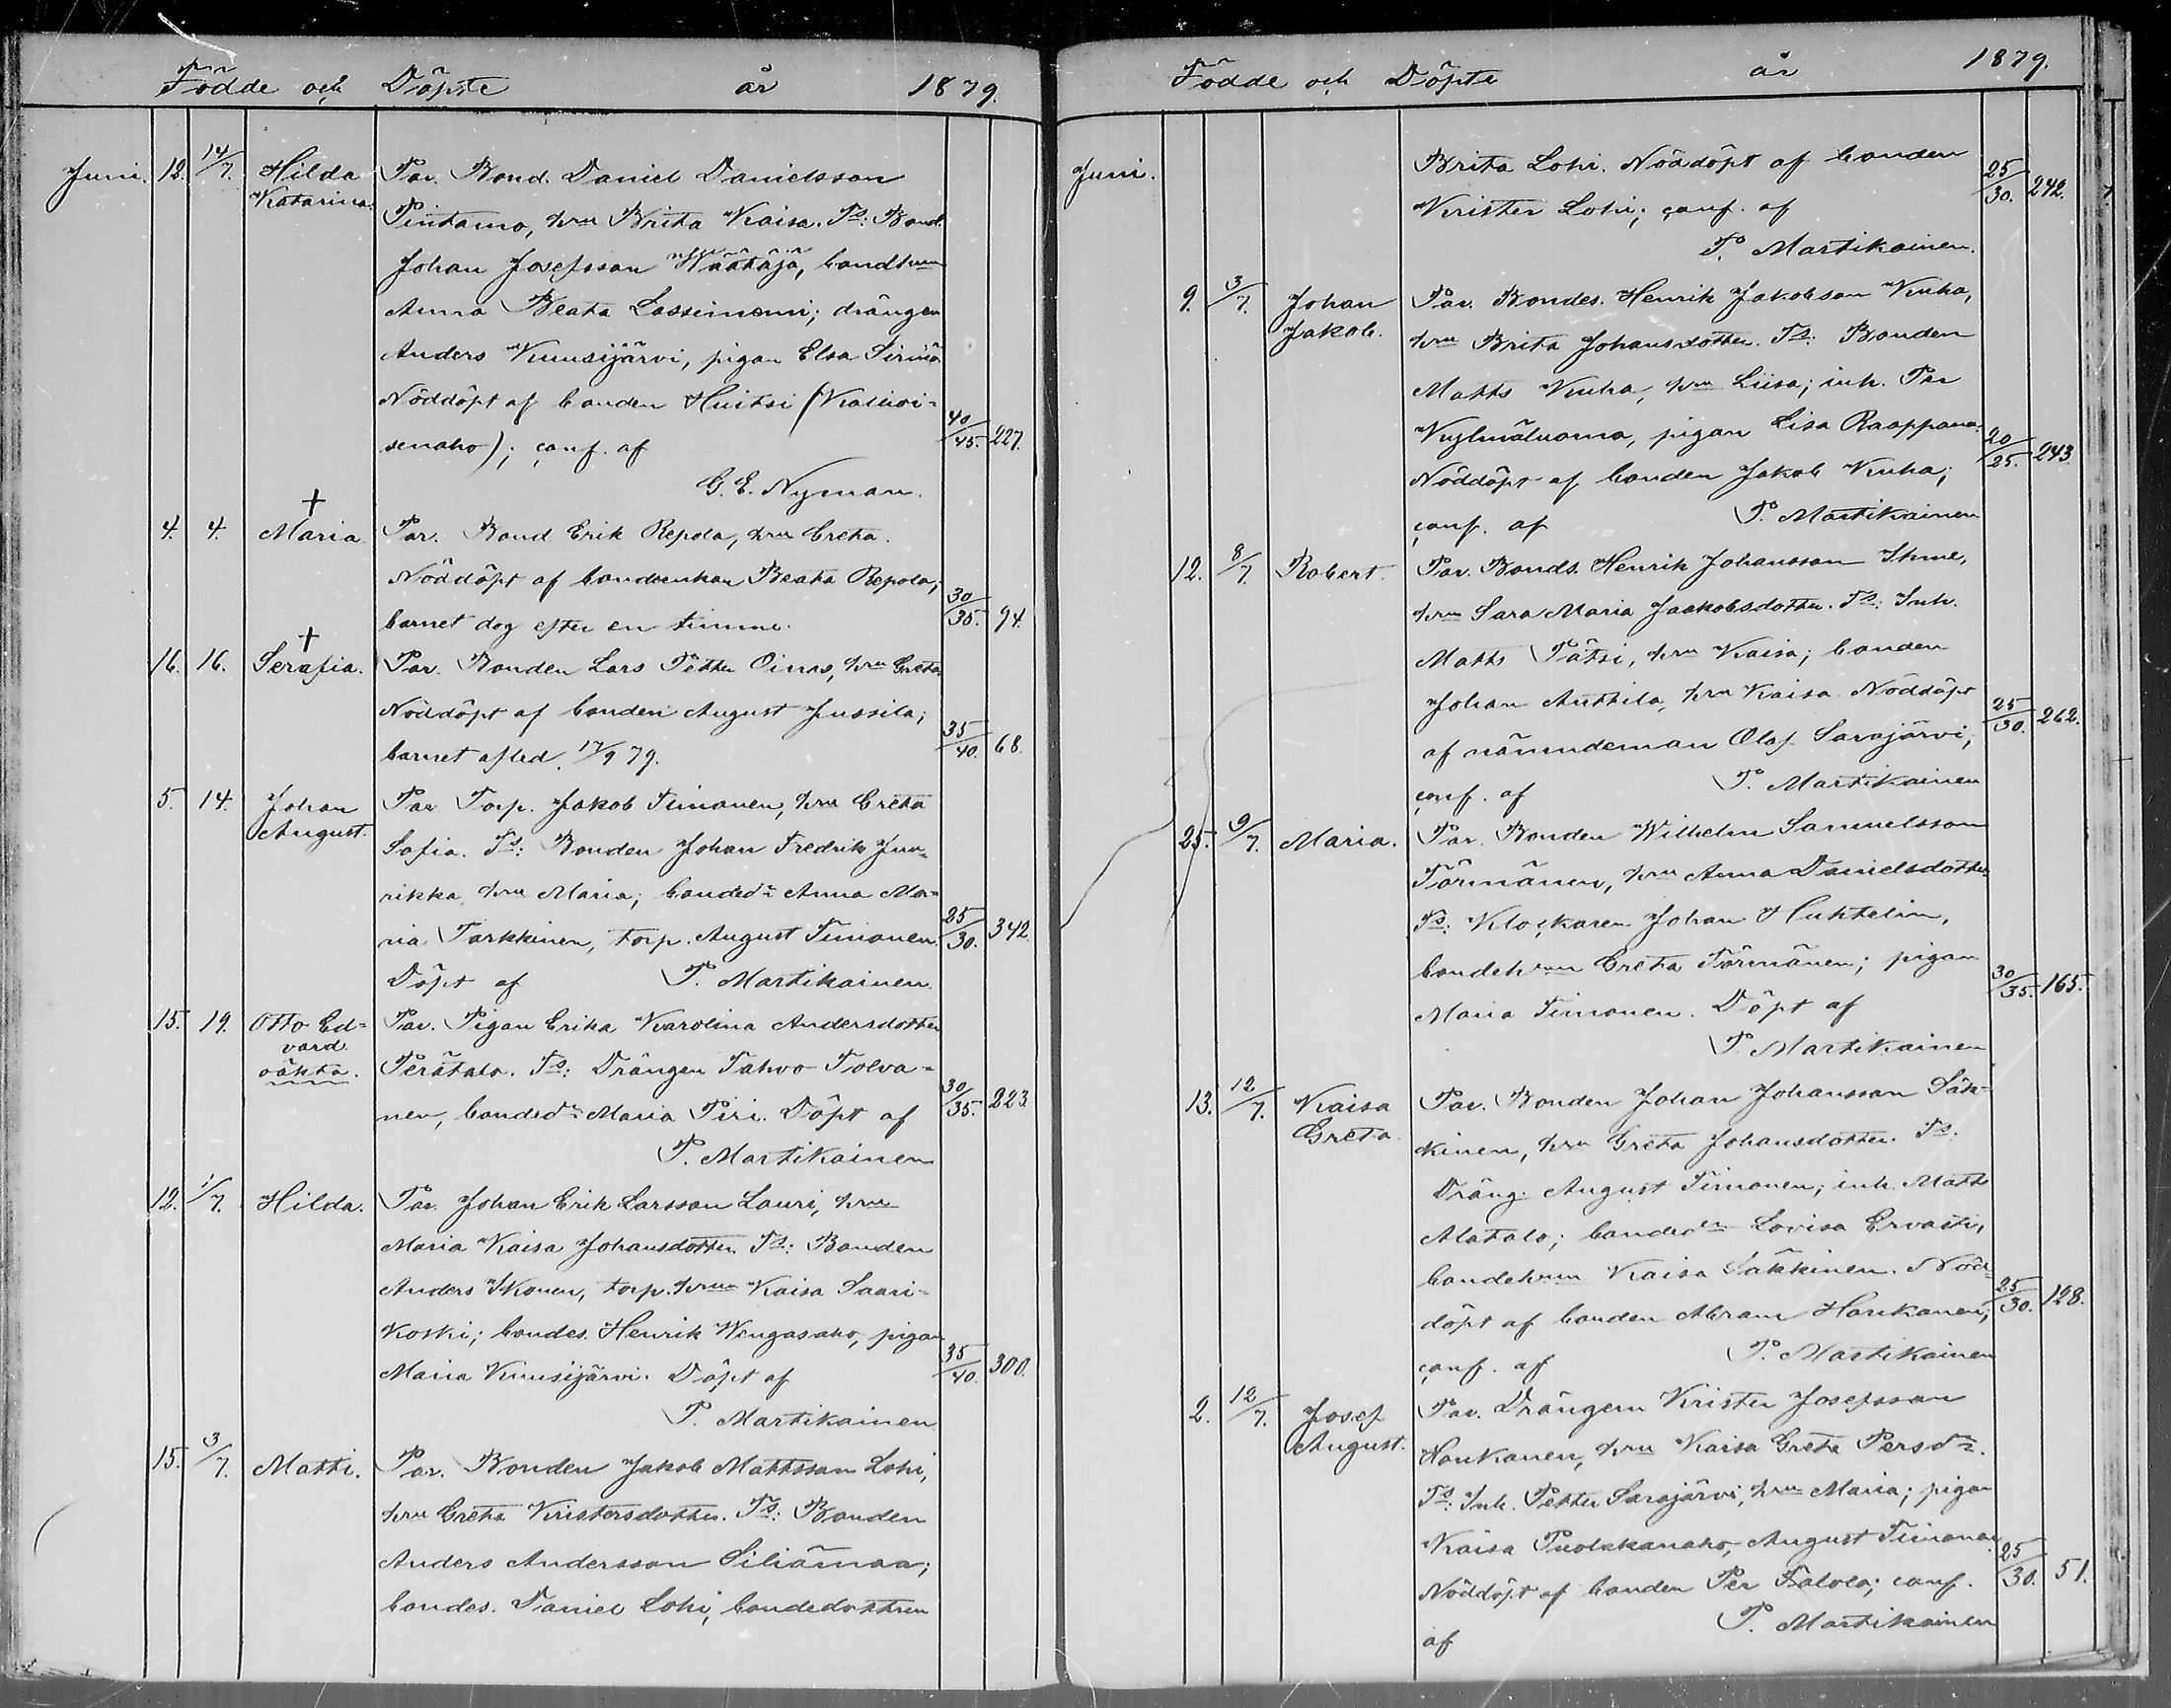 Födde och Döpte år 1879.
Juni. 12. 14/7. Hilda Par. Bond. Daniel Danielsson
Katarina. Pintamo, hru Brita Kaisa. Ts: Bond.
Johan Josefsson Väätäjä, bondhru
Anna Beata Lassinemi; drängen
Anders Kuusijärvi, pigan Elsa Sirniö
Nöddöpt af bonden Huitsi (Kallioi-
senaho); conf. af 40/45. 227.
G. E. Nyman.
†
4. 4. Maria. Par. Bond Erik Repola, hru Greta.
Nöddöpt af bondeenkan Beata Repola;
barnet dog efter en timme. 30/35. 94.
†
16. 16. Serafia. Par. Bonden Lars Petter Oinas, hru Greta.
Nöddöpt af bonden August Jussila;
barnet afled. 17/9 79. 35/40. 68.
5. 14. Johan Par Torp. Jakob Timonen, hru Greta
August. Sofia. Ts: Bonden Johan Fredrik Juu-
rikka, hru Maria; bondedr Anna Ma-
ria Tarkkinen, torp. August Timonen. 25/30. 342.
Döpt af P. Martikainen.
15. 19. Otto Ed- Par. Pigan Erika Karolina Andersdotter
vard.
oäkta. Perätalo. Ts: Drängen Tahvo Tolva-
nen, bondedr Maria Piri. Döpt af 30/35. 223.
P. Martikainen
12. 1/7. Hilda. Par. Johan Erik Larsson Lauri, hru
Maria Kaisa Johansdotter. Ts: Bonden
Anders Ikonen, torp. hru Kaisa Saari-
koski; bondes. Henrik Wengasaho, pigan
Maria Kuusijärvi. Döpt af 35/40. 300.
P. Martikainen
15. 3/7. Matti. Par. Bonden Jakob Mattsson Lohi,
hru Greta Kristersdotter. Ts: Bonden
Anders Andersson Siliämaa;
bondes. Daniel Lohi, bondedottren
Födde och Döpte år 1879.
Juni. Brita Lohi. Nöddöpt af bonden
Krister Lohi; conf. af 25/30. 242.
P. Martikainen.
9. 3/7. Johan Par. Bondes. Henrik Jakobson Kuha,
Jakob. hru Brita Johansdotter. Ts: Bonden
Matts Kuha, hru Liisa; inh. Par
Kylmäluoma, pigan Lisa Raappana.
Nöddöpt af bonden Jakob Kuha; 20/25. 243.
conf. af P. Martikainen
12. 8/7. Robert. Par. Bonds. Henrik Johansson Ihme,
hru Sara Maria Jaakobsdotter. Ts: Inh.
Matts Pätsi, hru Kaisa; bonden
Johan Anttila, hru Kaisa. Nöddöpt
af nämndeman Olof Sarajärvi; 25/30. 262.
conf. af P. Martikainen
25. 9/7. Maria. Par. Bonden Wilhelm Samuelsson
Törmänen, hru Anna Danielsdotter
Ts: Klockaren Johan Huhtelin,
bondehrun Greta Törmänen; pigan
Maria Timonen. Döpt af 30/35. 165.
P. Martikainen
13. 12/7. Kaisa Par. Bonden Johan Johansson Säk-
Greta. kinen, hru Greta Johansdotter. Ts:
Dräng. August Timonen; inh. Matts
Alatalo; bondedr Lovisa Ervasti,
bondehrun Kaisa Säkkinen. Nöd-
döpt af bonden Abram Honkanen; 25/30. 128.
conf. af P. Martikainen
2. 12/7. Josef Par. Drängen Krister Josefsson
August. Honkanen, hru Kaisa Greta Persdr.
Ts: Inh. Petter Sarajärvi, hru Maria; pigan
Kaisa Puolakanaho, August Timonen
Nöddöpt af bonden Per Talola; conf. 25/30. 51.
af P. Martikainen